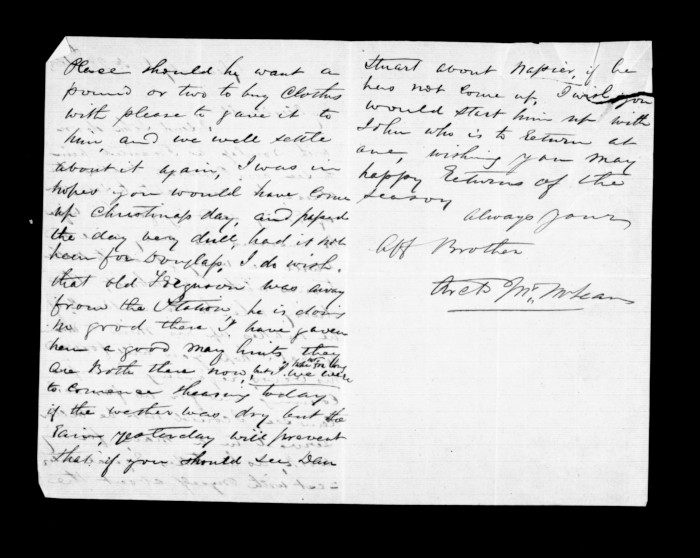 Please should he want a
pound or two to buy Cloths
with please to gave it to
him, and we well settle
about it again, I was in
hopes you would have Come
up Christmas day, and passed
the day very dull, had it not
been for Douglas, I do wish,
that old Ferguson was away
from the Station, he is doing
no good there I have gaven
him a good may hints, they
are Both there now, we were
to Comence shearing today
if the weather was dry but the
Raing yesterday will prevent
that, if you should see Dan
Stuart about Napier, if he
has not Come up, I wish you
would start him up with
John who is to Return at
one, wishing you may
happy Returns of the
season
always yours
Aff Brother
Arch McLean